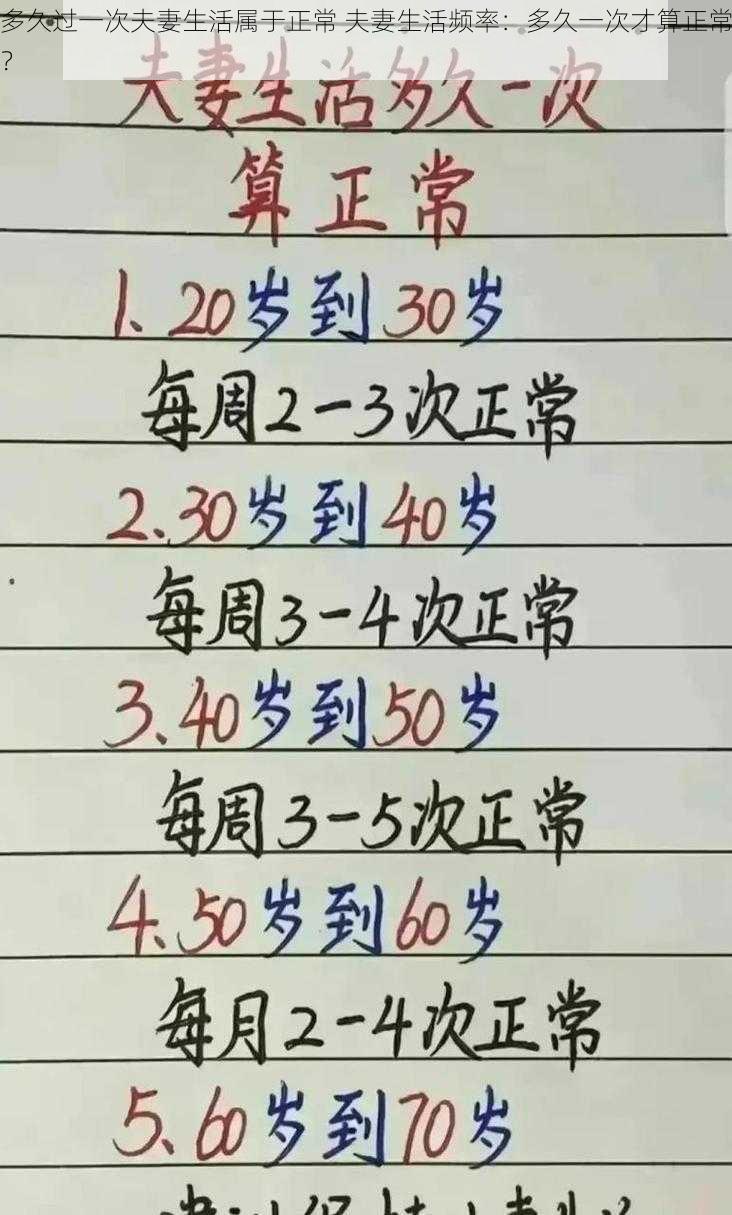 多久过一次夫妻生活属于正常 夫妻生活频率：多久一次才算正常
？
夫妻生活多久一次
算正常
1、20岁到30岁
每周2-3次正常
2、30岁到40岁
每周3-4次正常
3、40岁到50岁
每周3-5次正常
4、50岁到60岁
每月2-4次正常
5、60岁到70岁